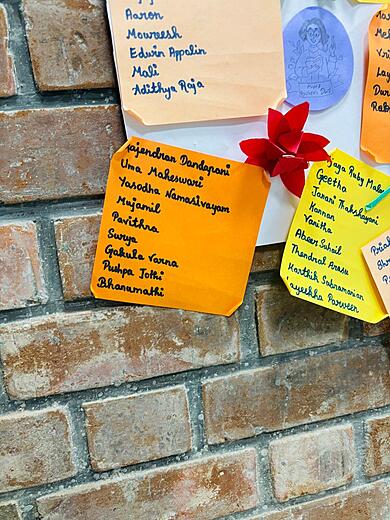 Aaron
Moureesh
Edwin Appolin
Mali
Adithya Raja
Rajendran Dandapani
Uma Maheswari
Yasodha Namasivayam
Mujamil
Pavithra
Surya
Gakula Varna
Pushpa Jothi
Bhanamathi
Jaya Ruby Male
Geetha
Janani Thakshayani
Kannan
Vanitha
Abeer Suhail
Thendral Arasu
Karthik Subramanian
ayeekha Parveen